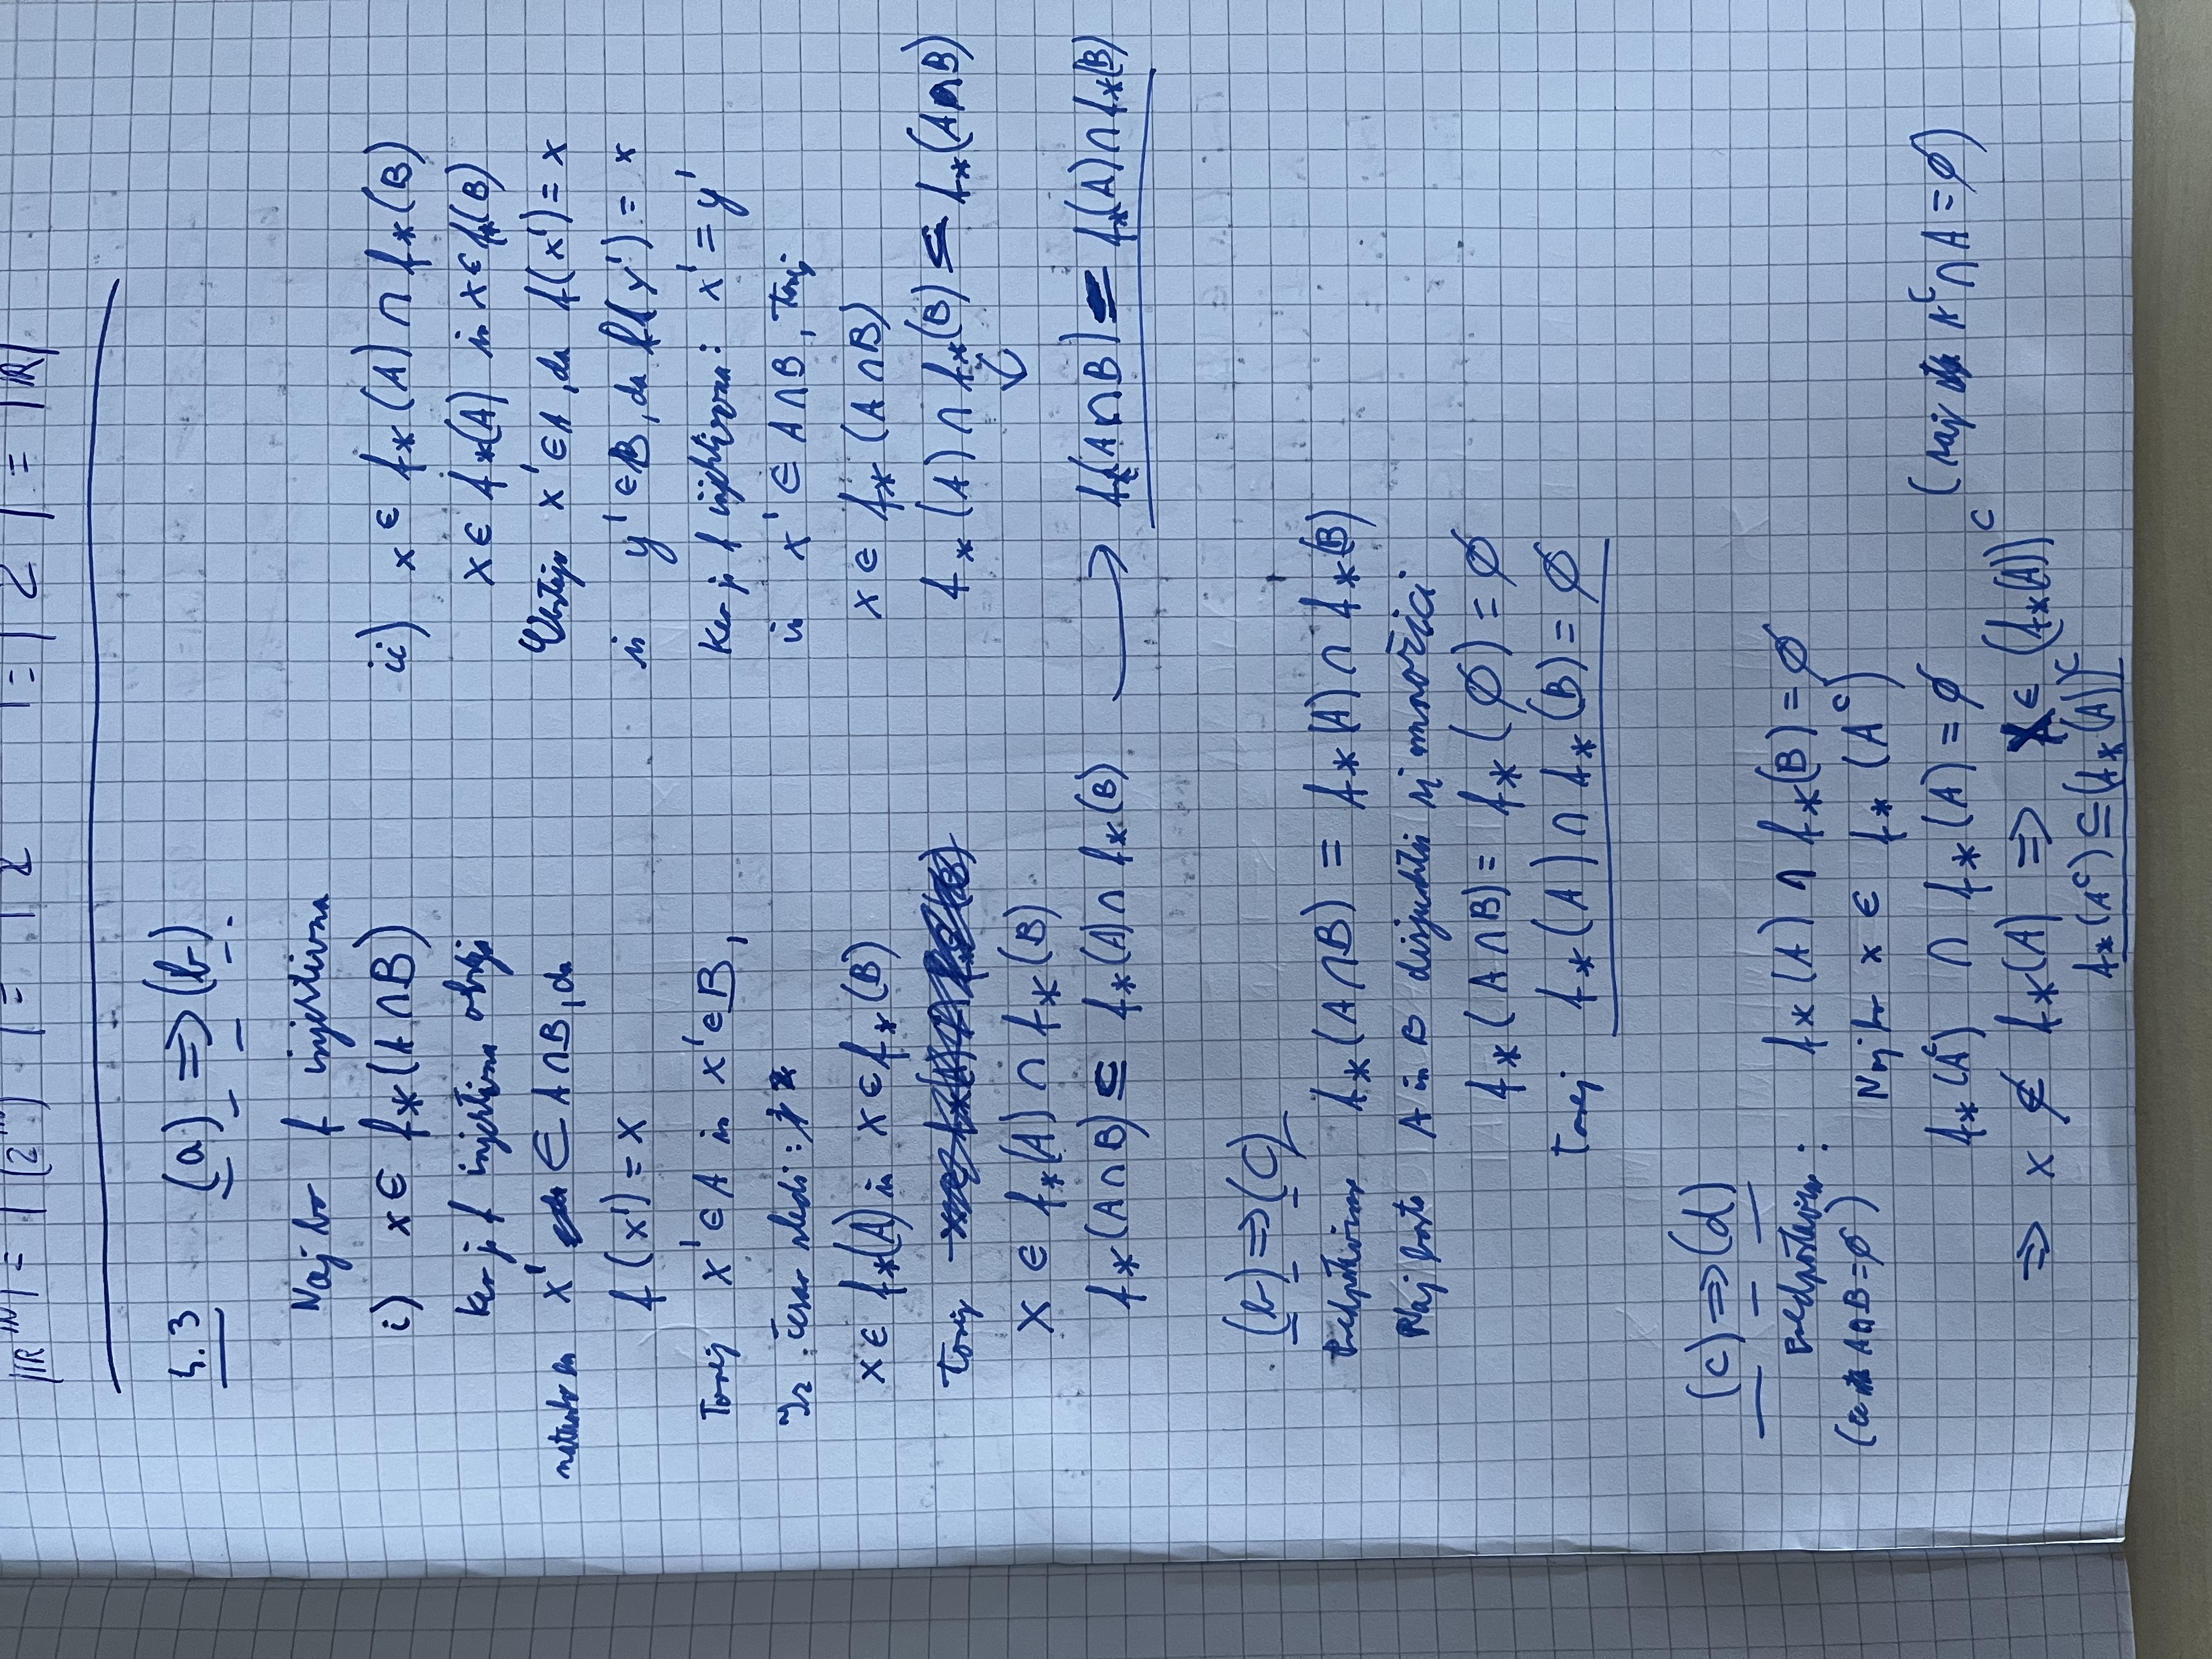 |ℝ^ℕ| = |(2^ℕ) | = | 2 | = | 2 | = |ℝ|
4.3 (a) ⇒ (b)
Naj bo f injektivna
i) x ∈ f_*(A ∩ B)
Ker je f injektivna obstaja
natanko en x' ∈ A ∩ B, da
f(x') = x
Torej x' ∈ A in x' ∈ B,
Iz česar sledi:
x ∈ f_*(A) in x ∈ f_*(B)
Torej
x ∈ f_*(A) ∩ f_*(B)
f_*(A ∩ B) ⊆ f_*(A) ∩ f_*(B) ⟶
ii) x ∈ f_*(A) ∩ f_*(B)
x ∈ f_*(A) in x ∈ f_*(B)
Obstaja x' ∈ A, da f(x') = x
in y' ∈ B, da f(y') = x
Ker je f injektivna: x' = y'
in x' ∈ A ∩ B, torej
x ∈ f_*(A ∩ B)
f_*(A) ∩ f_*(B) ⊆ f_*(A ∩ B)
↓
f_*(A ∩ B) = f_*(A) ∩ f_*(B)
(b) ⇒ (c)
Predpostavimo f_*(A ∩ B) = f_*(A) ∩ f_*(B)
Naj bosta A in B disjunktni množici
f_*(A ∩ B) = f_*(∅) = ∅
Torej f_*(A) ∩ f_*(B) = ∅
(c) ⇒ (d)
Predpostavimo: f_*(A) ∩ f_*(B) = ∅
(če A ∩ B = ∅) Naj bo x ∈ f_*(A^c)
f_*(A^c) ∩ f_*(A) = ∅ (saj A^c ∩ A = ∅)
⇒ x ∉ f_*(A) ⇒ x ∈ (f_*(A))^c
f_*(A^c) ⊆ (f_*(A))^c